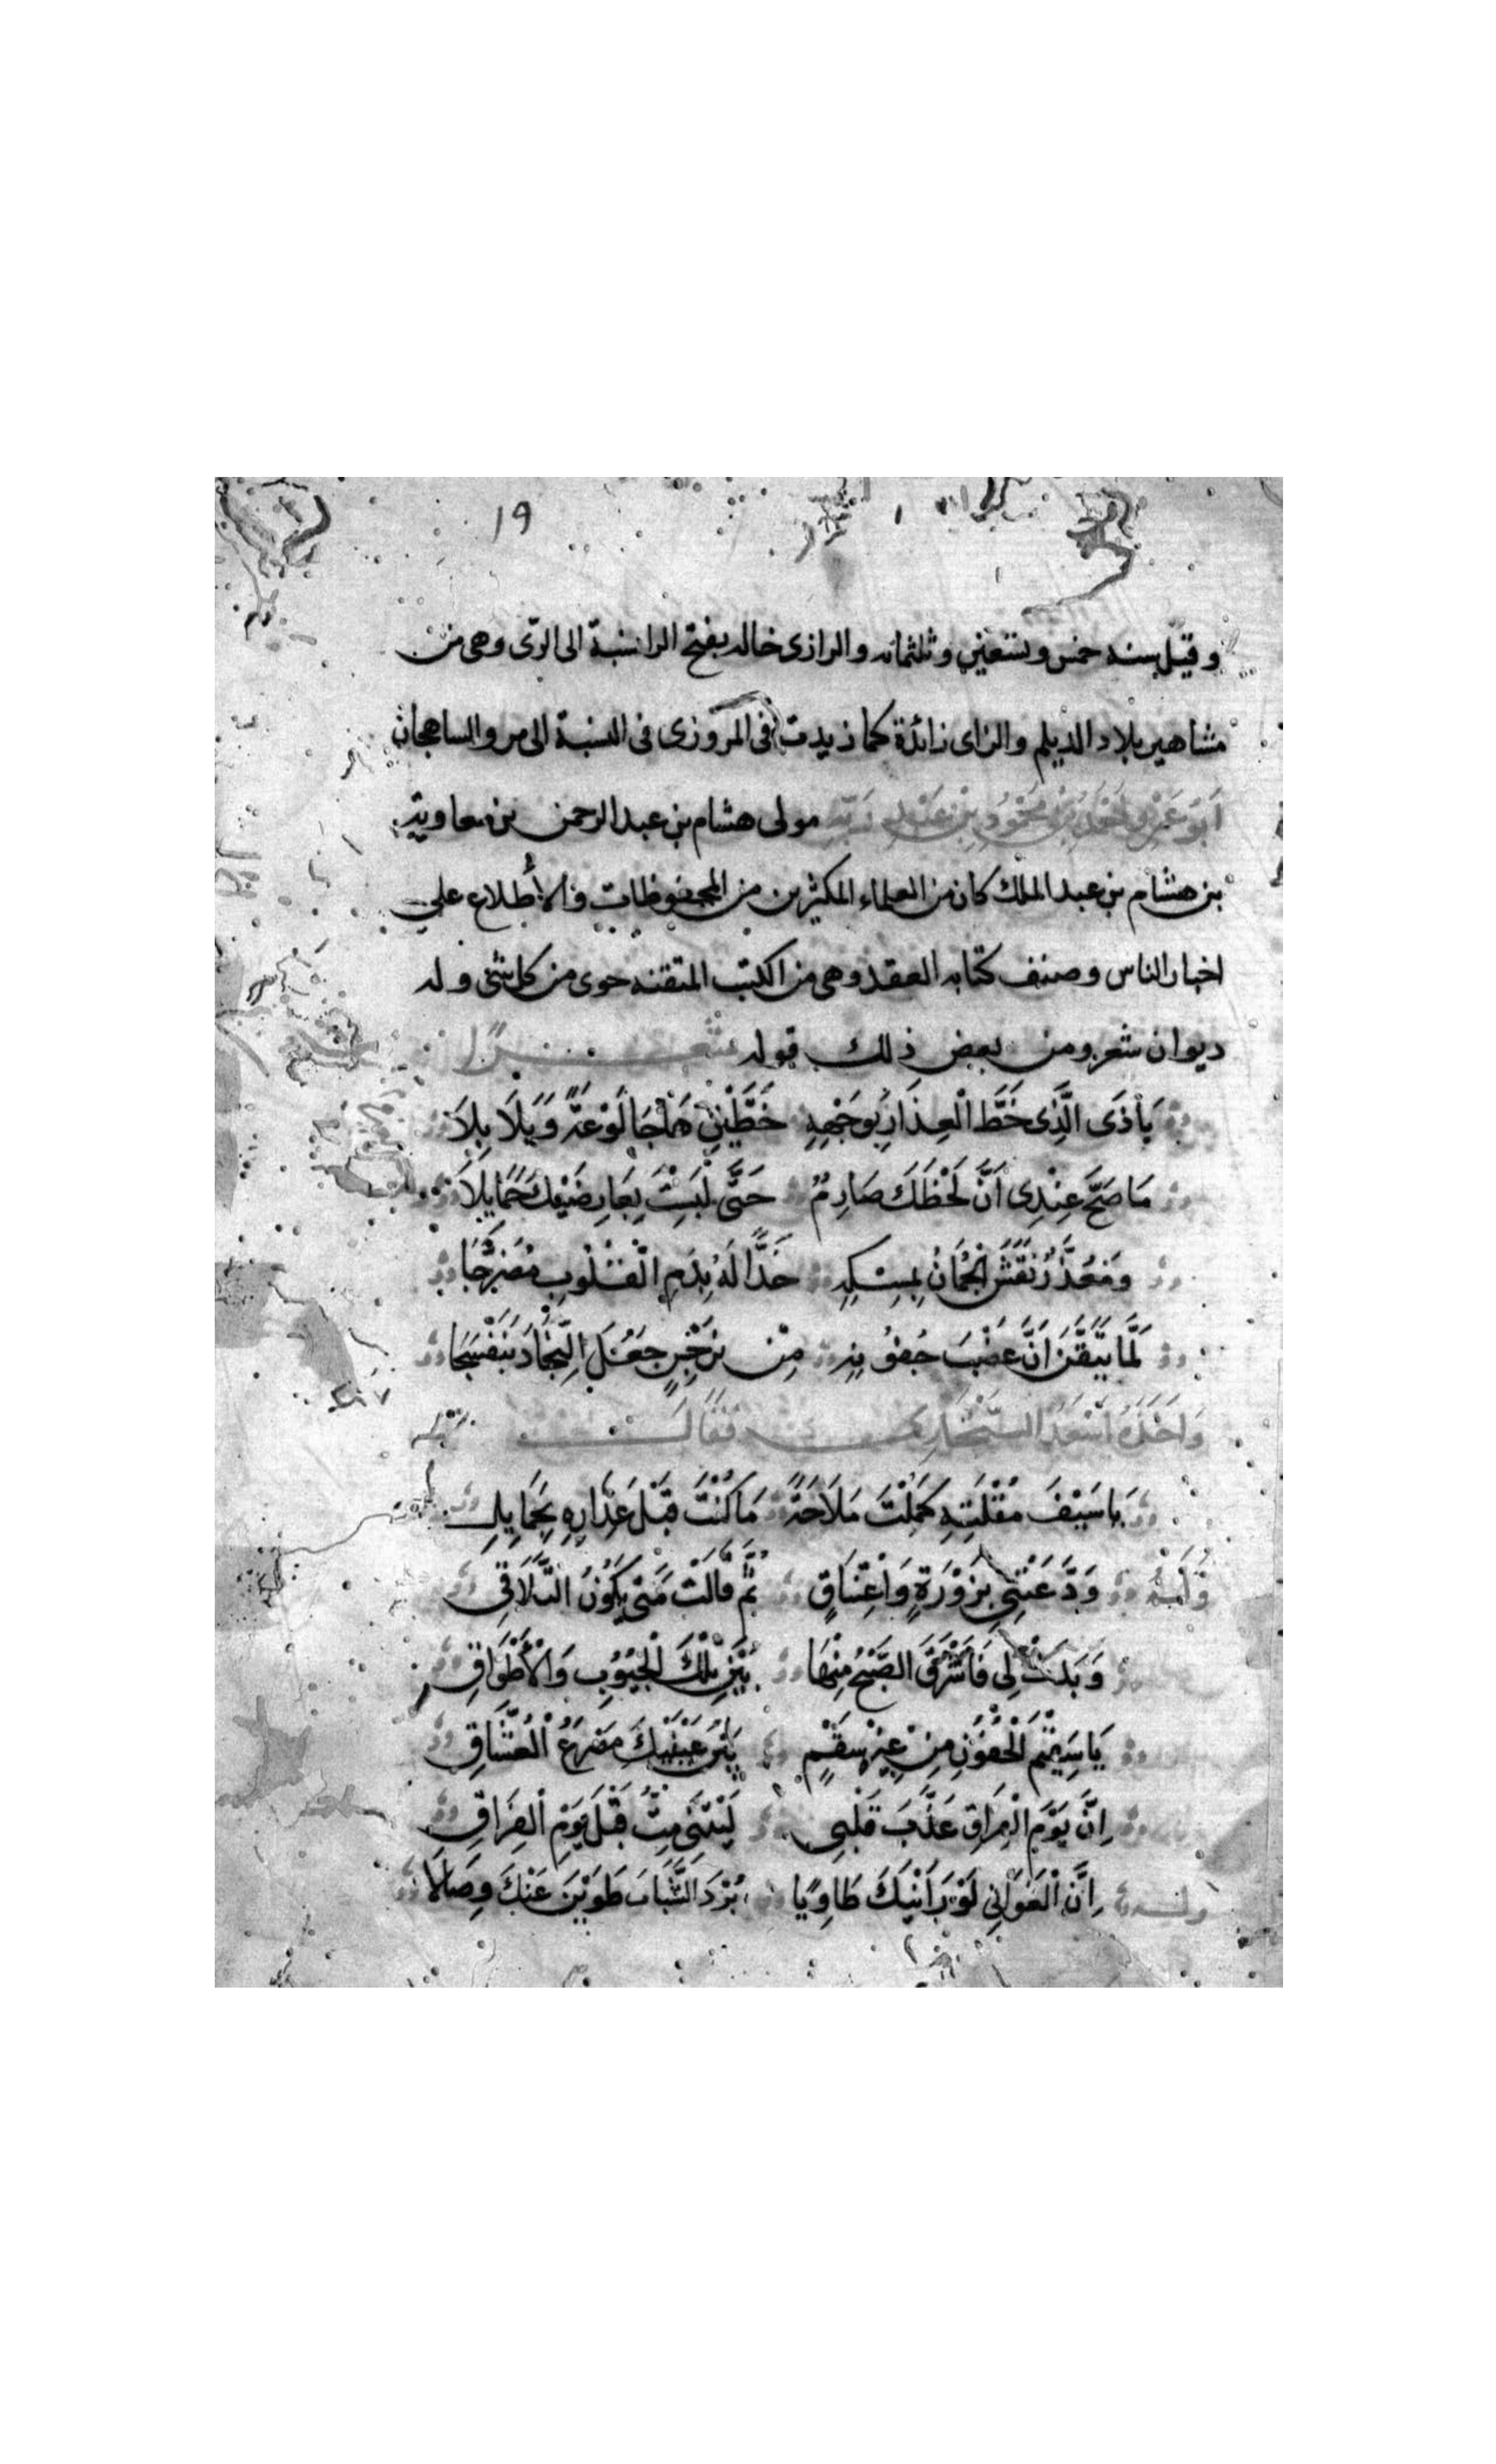 ١٩
وقيل سنه خمس وتسعين وثلثمائه والرازى خاله بفتح الرا نسبة الى الرّى وهى من
مشاهير بلاد الديلم والزاى زائدة كما زيدت فى المروزى فى النسبة الى مرو الساهجان
اَبُو عمر احمد بن محمود بن عبد ربّه مولى هشام بن عبد الرحمن بن معاوية
بن هشام بن عبد الملك كان من العلماء المكثرين من المحفوظات والأطلاع على
اخبار الناس وصنف كتابه العقد وهى من الكتب المتقنه حوى من كل شئ وله
ديوان شعر ومن بعض ذلك قوله شعرًا
يَاذَى الَّذِى خَطَّ الْعِذَارِ بِوَجْهِهِ خَطَّيْنِ هَاجَا لَوْعَةً وَبَلَا بِلَا
مَا صَحَّ عِنْدِى اَنَّ لَحْظَكَ صَارِمٌ حَتَّى لَبِسْتَ بِعَارِضَيْكَ حَمَايِلَا
وَمُعَذَّرٍ نَقَشَ الْجَمَانُ بِمِسْكِهِ خَدًّا لَهُ بِدَمِ الْقُلُوبِ مُضَرَّجَا
لَمَّا تَيَقَّنَ اَنَّ عَضْبَ جُفُونِهِ مِنْ نَرْجِسٍ جَعَلَ النِّجَادَ بَنَفْسَجَا
وَاَخَذَهُ اَسْعَدُ السّنْجَارِى فَقَالَ
يَا سَيْفَ مُقْلَتِهِ كَمَلْتَ مَلَاحَةً مَا كُنْتَ قَبْلَ عِذَارِهِ بِحَمَايِلِ
وَلَهُ وَدَّعَتْنِى بِزَوْرَةٍ وَاعْتِنَاقٍ ثُمَّ قَالَتْ مَتَى يَكُونُ التَّلَاقِى
وَبَدَتْ لِى فَاَشْرَقَ الصُّبْحُ مِنْهَا بَيْنَ تِلْكَ الْجُيُوبِ وَالْأَطْوَاقِ
يَا سَقِيْمَ الْجُفُوْنِ مِنْ غَيْرِ سَقْمٍ بَيْنَ عَيْنَيْكَ مَصْرَعُ الْعُشَّاقِ
اِنَّ يَوْمَ الْفِرَاقِ عَذَّبَ قَلْبِى لَيْتَنِى مِتُّ قَبْلَ يَوْمِ الْفِرَاقِ
وله اِنَّ الْغَوَانِى لَوْ رَاَيْنَكَ طَاوِيًا بُرْدَ الشَّبَابِ طَوَيْنَ عَنْكَ وِصَالَا